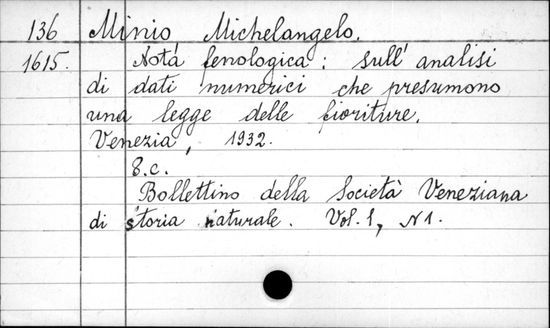 136 Minio Michelangelo.
1615. Nota fenologica: sull' analisi
di dati numerici che presumono
una legge delle fioriture.
Venezia, 1932.
8.c.
Bollettino della Società Veneziana
di storia naturale. Vol. 1, N 1.